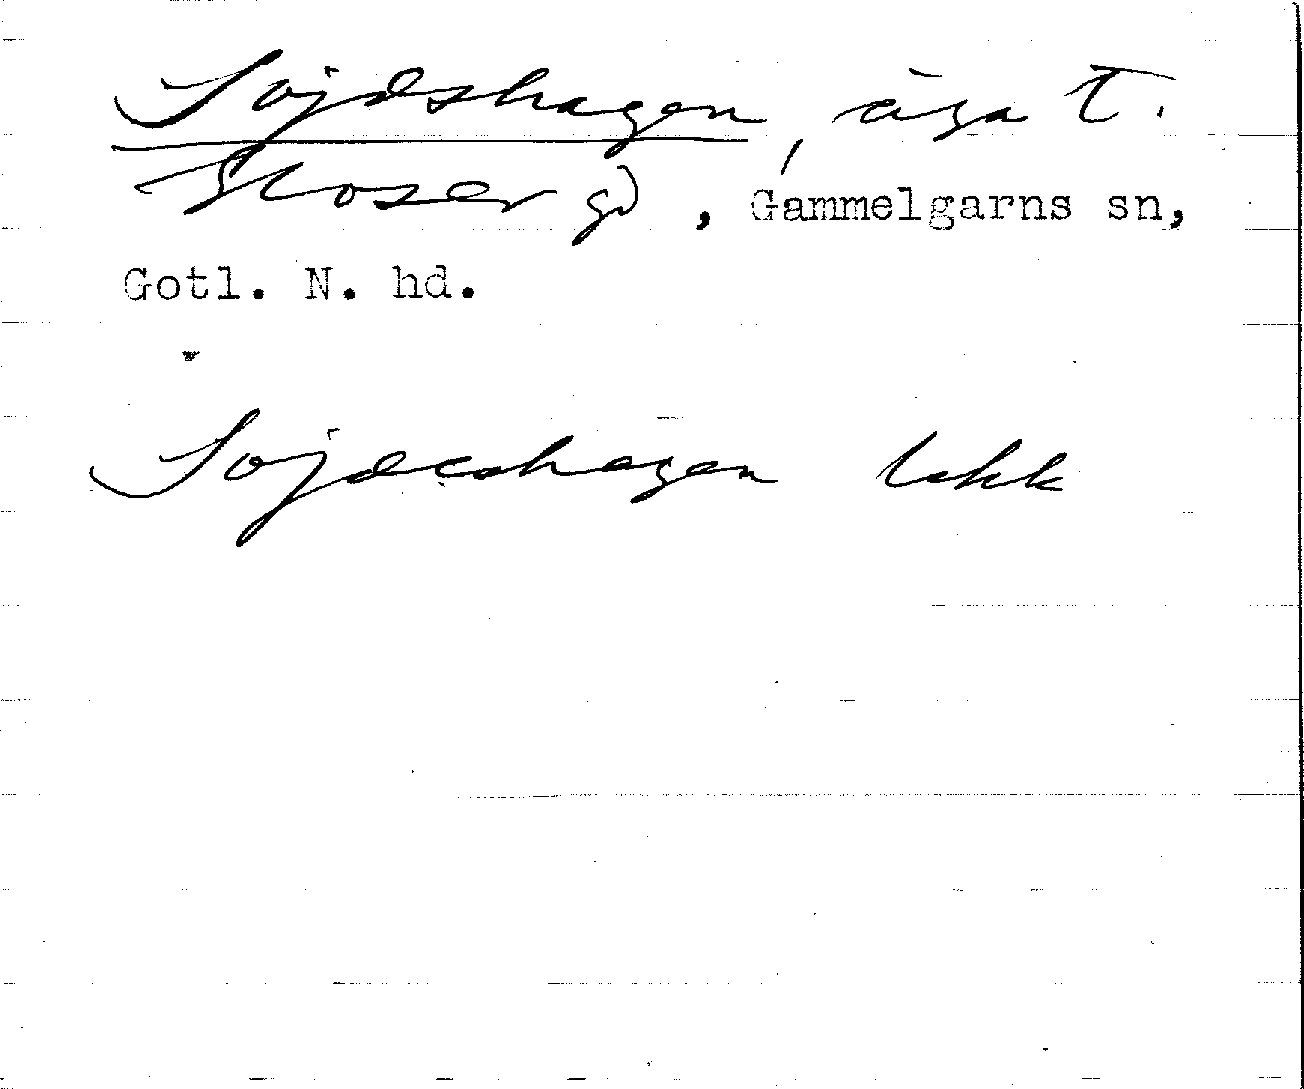 Sojdeshagen, äga t.
Skoser gd, Gammelgarns sn,
Gotl. N. hd.
Sojdeshagen Lekk